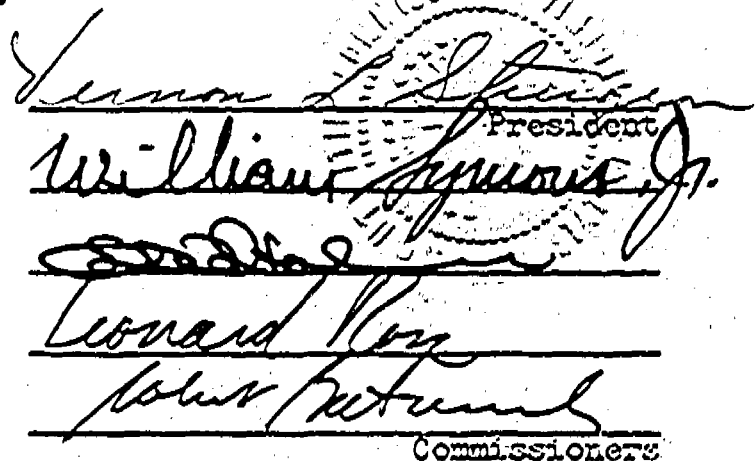 Vernon L. Sturgeon
President
William Symons, Jr.
Leonard Ross
Robert Batinovich
Commissioners